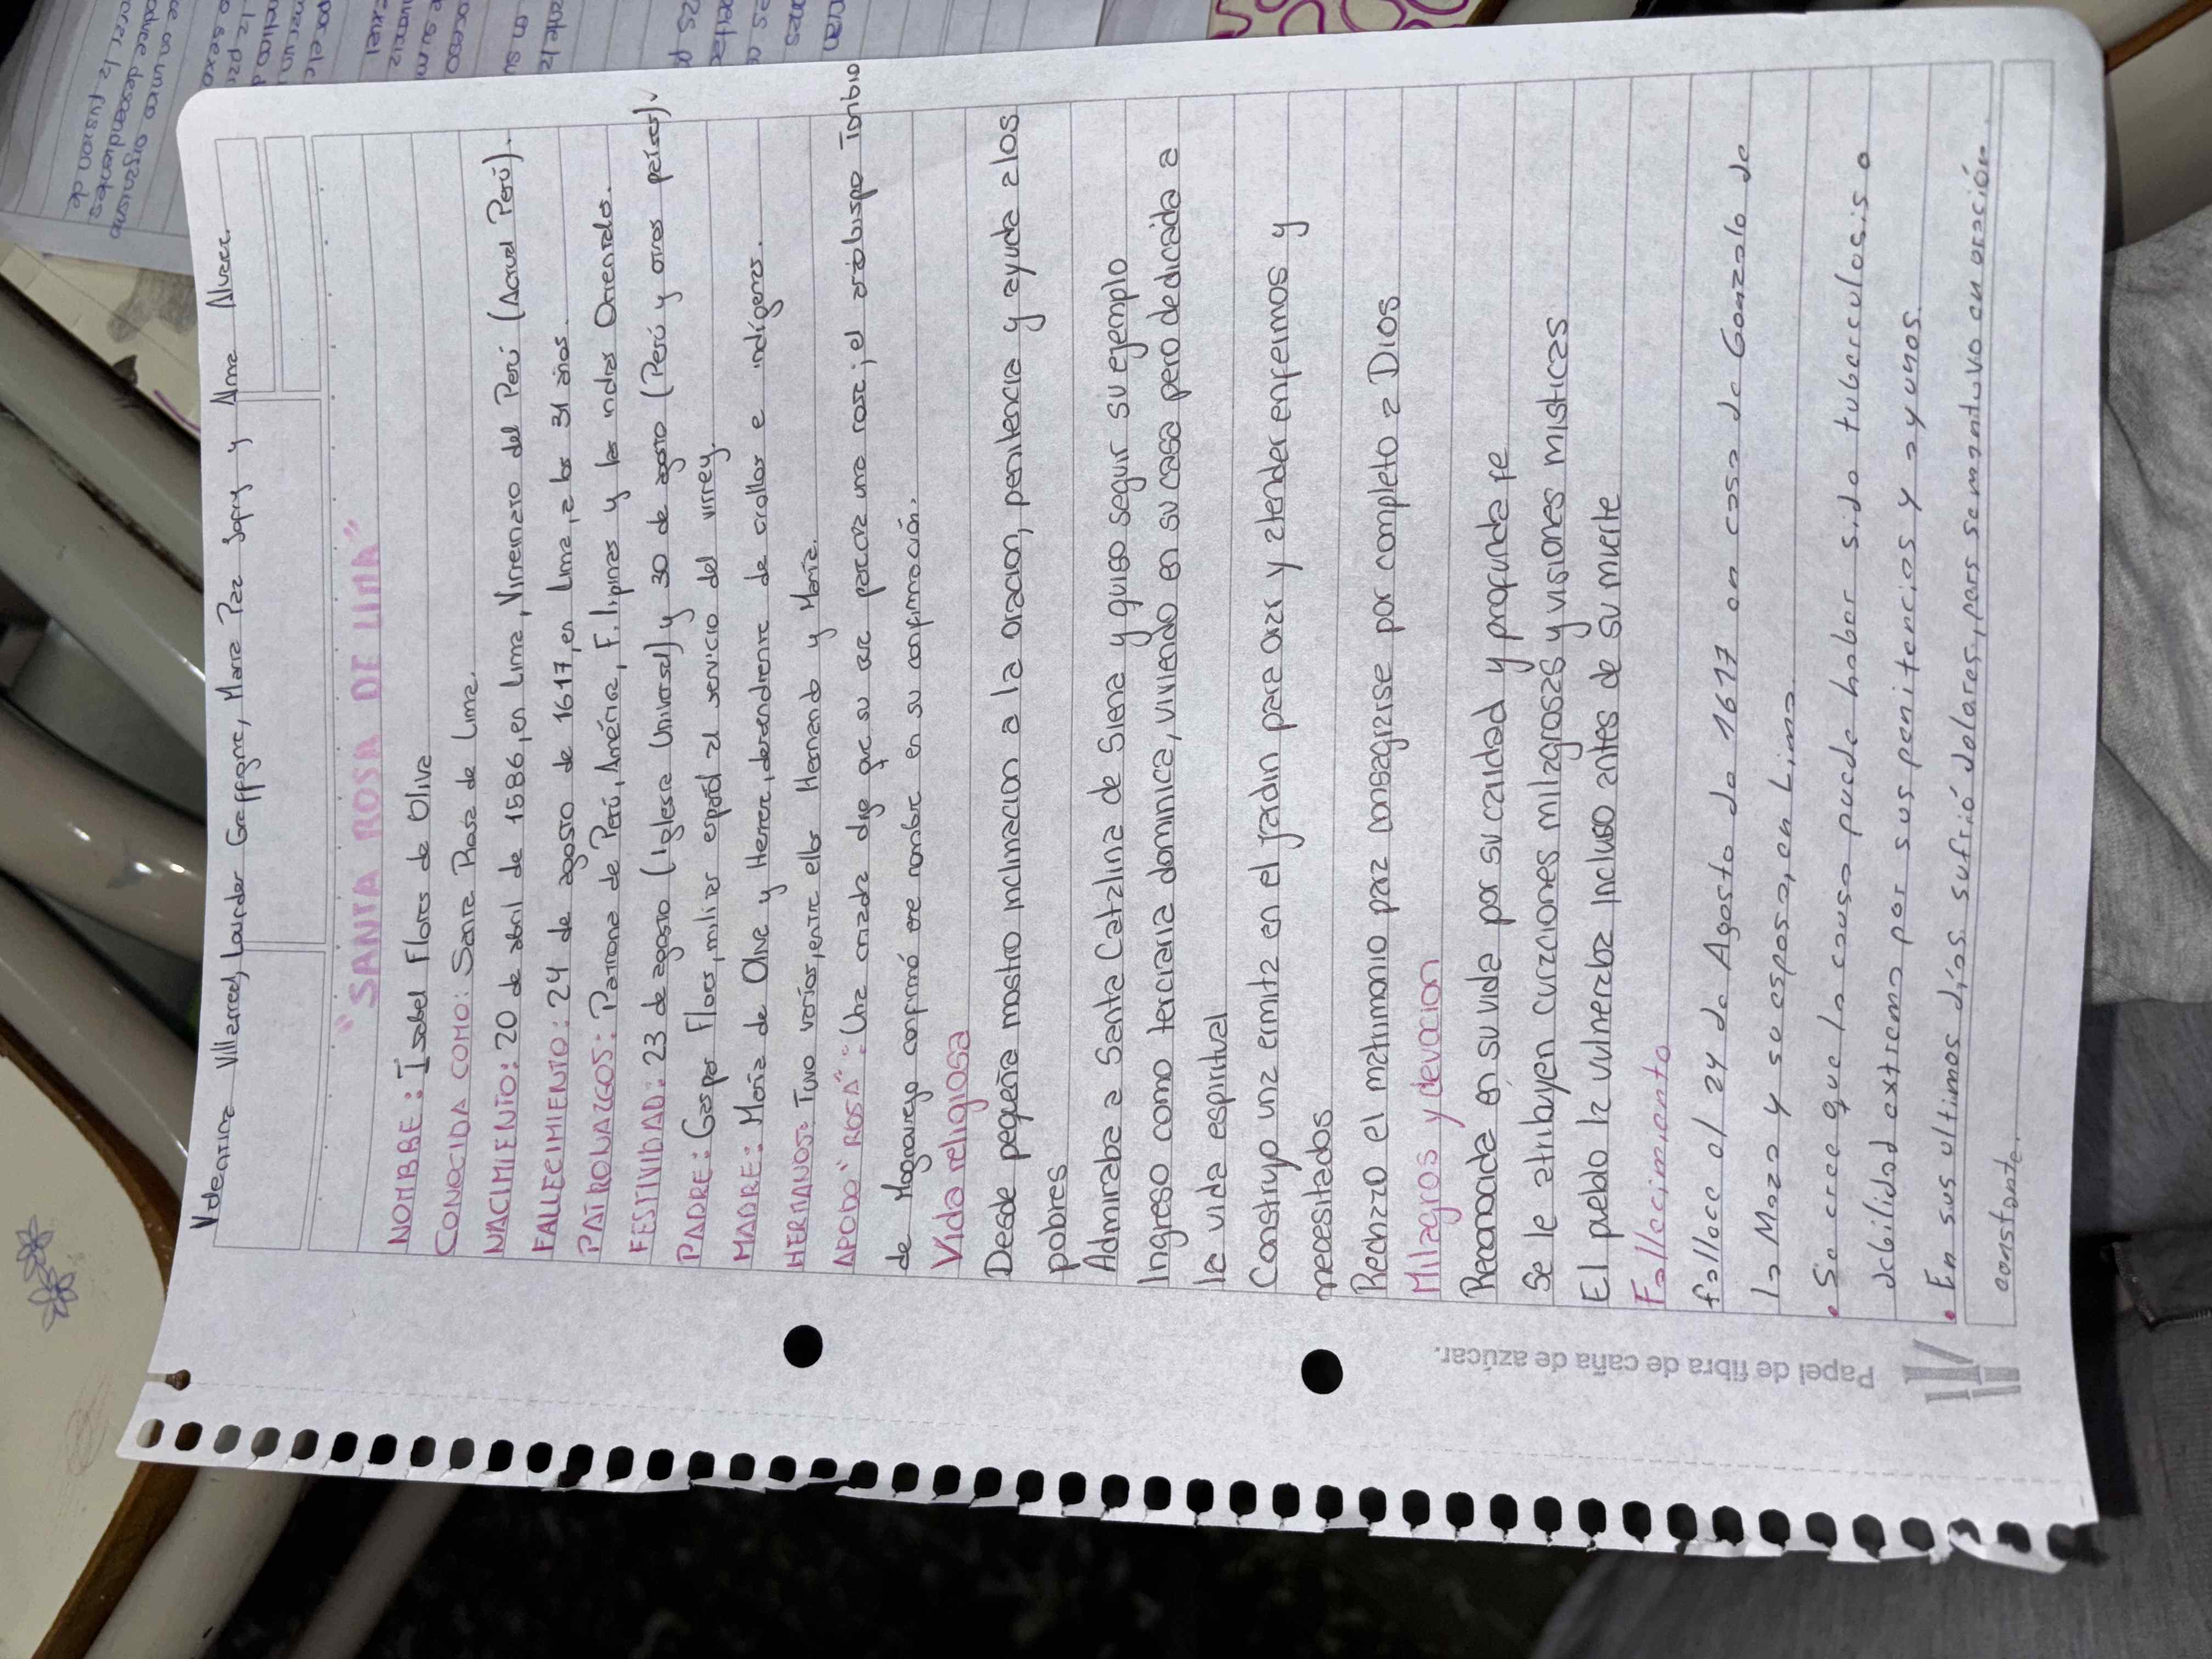 Valentina Villarreal, Lourdes Graffigna, Maria Paz Sapry y Alma Alvarez.
"SANTA ROSA DE LIMA"
NOMBRE: Isabel Flores de Oliva
CONOCIDA COMO: Santa Rosa de Lima.
NACIMIENTO: 20 de abril de 1586, en Lima, Virreinato del Perú (Actual Perú).
FALLECIMIENTO: 24 de agosto de 1617, en Lima, a los 31 años.
PATRONAZGOS: Patrona de Perú, América, Filipinas y las indias Orientales.
FESTIVIDAD: 23 de agosto (Iglesia Universal) y 30 de agosto (Perú y otros países).
PADRE: Gaspar Flores, militar español al servicio del virrey.
MADRE: María de Oliva y Herrera, descendiente de criollos e indígenas.
HERMANOS: Tuvo varios, entre ellos Hernando y María.
APODO "ROSA": Una criada dijo que su cara parecía una rosa; el arzobispo Toribio
de Mogrovejo confirmó ese nombre en su confirmación.
Vida religiosa
Desde pequeña mostro inclinacion a la oracion, penitencia y ayuda a los
pobres
Admiraba a Santa Catalina de Siena y quiso seguir su ejemplo
Ingreso como terciaria dominica, viviendo en su casa pero dedicada a
la vida espiritual
Construyo una ermita en el jardin para orar y atender enfermos y
necesitados
Rechazo el matrimonio para consagrarse por completo a Dios
Milagros y devocion
Reconocida en su vida por su caridad y profunda fe
Se le atribuyen curaciones milagrosas y visiones misticas
El pueblo la vulneraba incluso antes de su muerte
Fallecimiento
fallece el 24 de Agosto de 1617 en casa de Gonzalo de
la Maza y su esposa, en Lima.
• Se cree que la causa puede haber sido tuberculosis o
debilidad extrema por sus penitencias y ayunos.
• En sus ultimos días sufrió dolares, pars se mantuvo en oración
constante.
Papel de fibra de caña de azúcar.